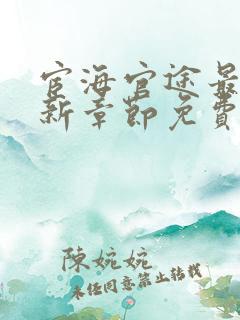 宦海官途最
新章節免費
陳婉婉
未经同意禁止转载